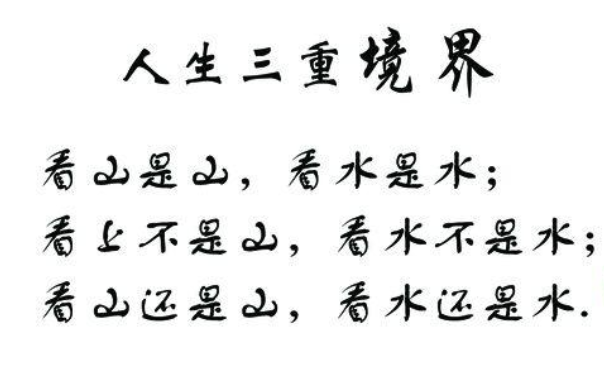 人生三重境界
看山是山，看水是水；
看上不是山，看水不是水；
看山还是山，看水还是水.